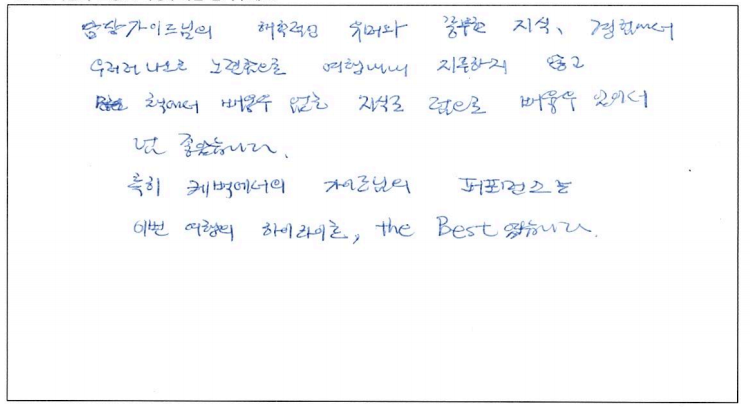 담당가이드님의 해학적인 유머와 풍부한 지식, 경험에서
우러러 나오는 노련함으로 여행내내 지루하지 않고
책에서 배울수 없는 지식도 덤으로 배울수 있어서
넘 좋았습니다.
특히 퀘벡에서의 가이드님의 퍼포먼스는
이번 여행의 하이라이트, the Best 였습니다.